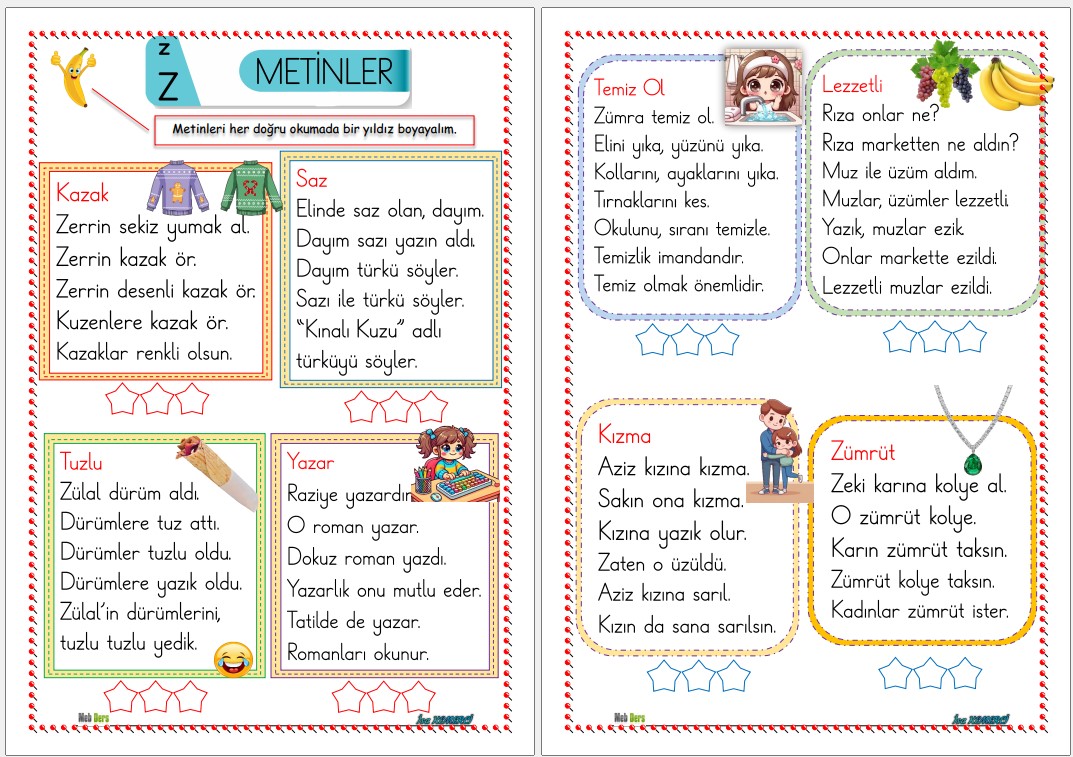 z
Z
METİNLER
Metinleri her doğru okumada bir yıldız boyayalım.
Kazak
Zerrin sekiz yumak al.
Zerrin kazak ör.
Zerrin desenli kazak ör.
Kuzenlere kazak ör.
Kazaklar renkli olsun.
Saz
Elinde saz olan, dayım.
Dayım sazı yazın aldı.
Dayım türkü söyler.
Sazı ile türkü söyler.
“Kınalı Kuzu” adlı
türküyü söyler.
Tuzlu
Zülal dürüm aldı.
Dürümlere tuz attı.
Dürümler tuzlu oldu.
Dürümlere yazık oldu.
Zülal’in dürümlerini,
tuzlu tuzlu yedik.
Yazar
Raziye yazardır
O roman yazar.
Dokuz roman yazdı.
Yazarlık onu mutlu eder.
Tatilde de yazar.
Romanları okunur.
Meb Ders
Temiz Ol
Zümra temiz ol.
Elini yıka, yüzünü yıka.
Kollarını, ayaklarını yıka.
Tırnaklarını kes.
Okulunu, sıranı temizle.
Temizlik imandandır.
Temiz olmak önemlidir.
Lezzetli
Rıza onlar ne?
Rıza marketten ne aldın?
Muz ile üzüm aldım.
Muzlar, üzümler lezzetli.
Yazık, muzlar ezik.
Onlar markette ezildi.
Lezzetli muzlar ezildi.
Kızma
Aziz kızına kızma.
Sakın ona kızma.
Kızına yazık olur.
Zaten o üzüldü.
Aziz kızına sarıl.
Kızın da sana sarılsın.
Zümrüt
Zeki karına kolye al.
O zümrüt kolye.
Karın zümrüt taksın.
Zümrüt kolye taksın.
Kadınlar zümrüt ister.
Meb Ders